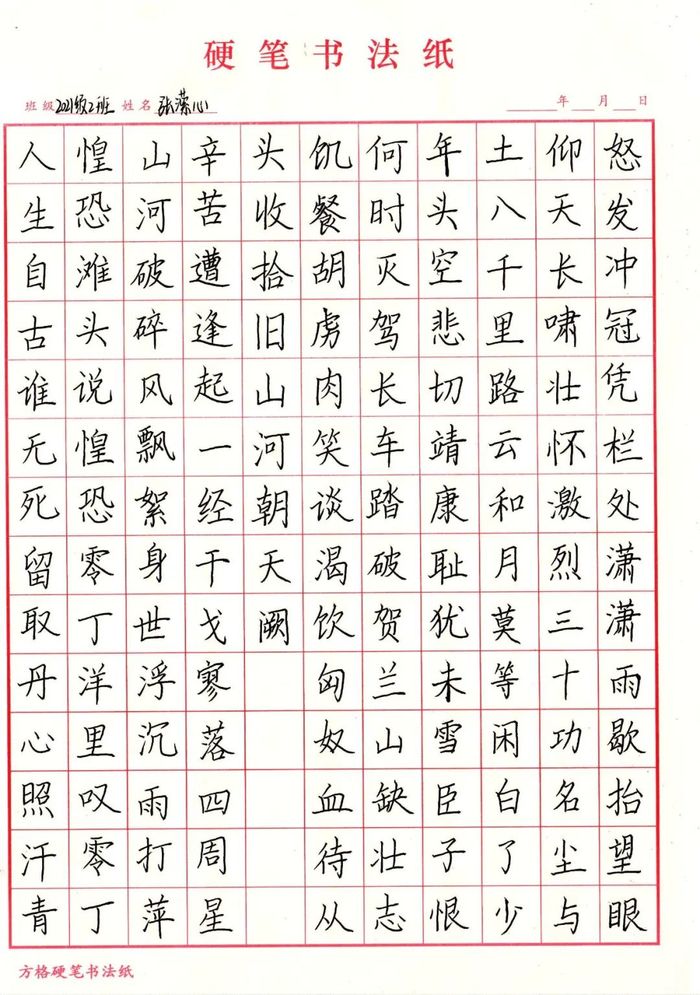 硬笔书法纸
班级 2021级2班 姓名 张潆心 年 月 日
怒发冲冠凭栏处潇潇雨歇抬望眼
仰天长啸壮怀激烈三十功名尘与
土八千里路云和月莫等闲白了少
年头空悲切靖康耻犹未雪臣子恨
何时灭驾长车踏破贺兰山缺壮志
饥餐胡虏肉笑谈渴饮匈奴血待从
头收拾旧山河朝天阙
辛苦遭逢起一经干戈寥落四周星
山河破碎风飘絮身世浮沉雨打萍
惶恐滩头说惶恐零丁洋里叹零丁
人生自古谁无死留取丹心照汗青
方格硬笔书法纸